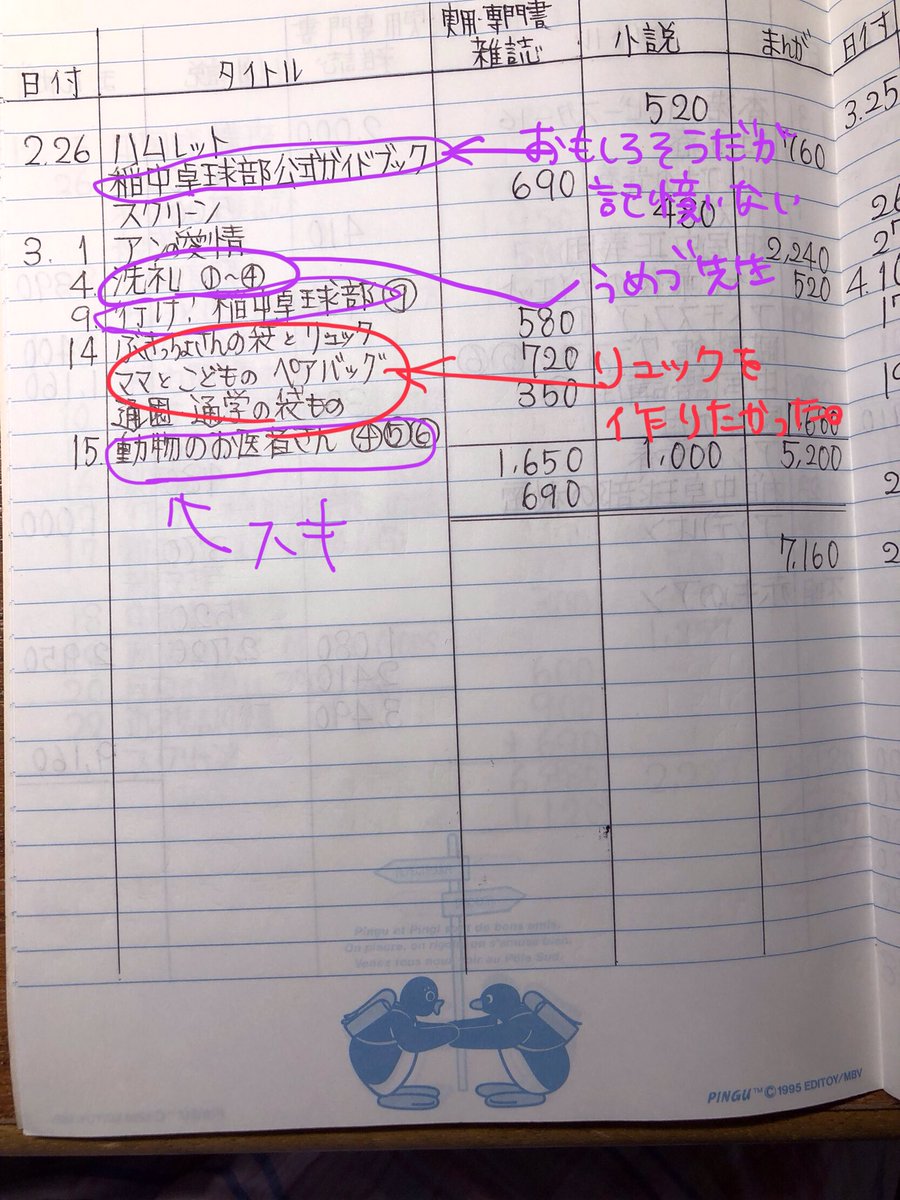 日付 タイトル 実用・専門書 雑誌 小説 まんが 日付
2.26 ハムレット 520 3.25
稲中卓球部公式ガイドブック 760
スクリーン 690
3. 1 アンの愛情 480
4. 洗礼 ①~④ 2,240
9. 行け!稲中卓球部 520 4.10
14 ぶきっちょさんの袋とリュック 580
ママとこどものペアバッグ 720
通園 通学の袋もの 350
15. 動物のお医者さん ④⑤⑥
1,650 1,000 5,200
690
7,160
おもしろそうだが
記憶にない
うめづ先生
リュックを
作りたかった。
スキ
Pingu et Pingi sont de bons amis.
On pleure, on rigole, on s'amuse bien.
Venez tous nous voir au Pôle Sud.
PINGU™©1995 EDITOY/MBV